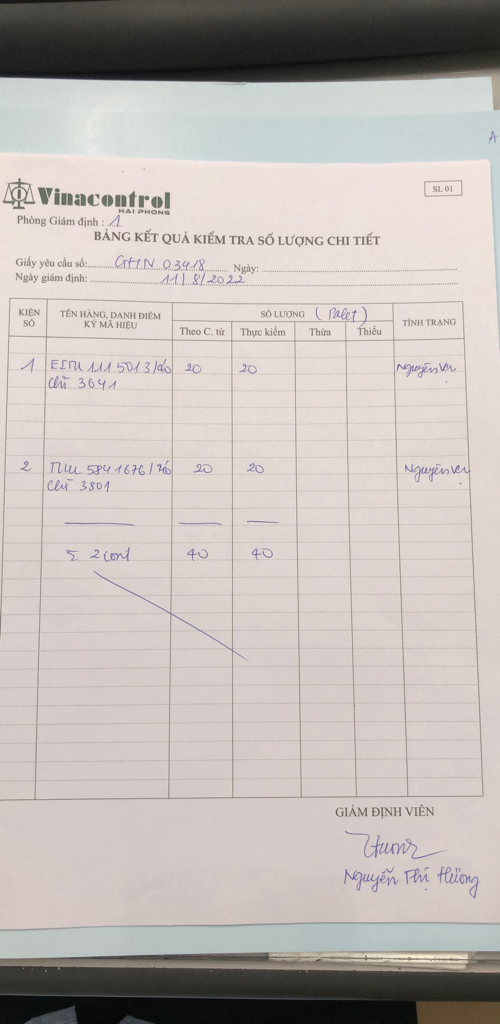 A
SL 01
Vinacontrol
HAI PHONG
Phòng Giám định : 1
BẢNG KẾT QUẢ KIỂM TRA SỐ LƯỢNG CHI TIẾT
Giấy yêu cầu số: GHN 03418 Ngày:
Ngày giám định: 11/8/2022
KIỆN SỐ TÊN HÀNG, DANH ĐIỂM KÝ MÃ HIỆU SỐ LƯỢNG (Palet) TÌNH TRẠNG
Theo C. từ Thực kiểm Thừa Thiếu
1 EITU 111 5013/40 20 20 Nguyên
Chì 3641
2 584 1676/40 20 20 Nguyên
Chì 3801
Σ 2 cont 40 40
GIÁM ĐỊNH VIÊN
Hương
Nguyễn Thị Hương